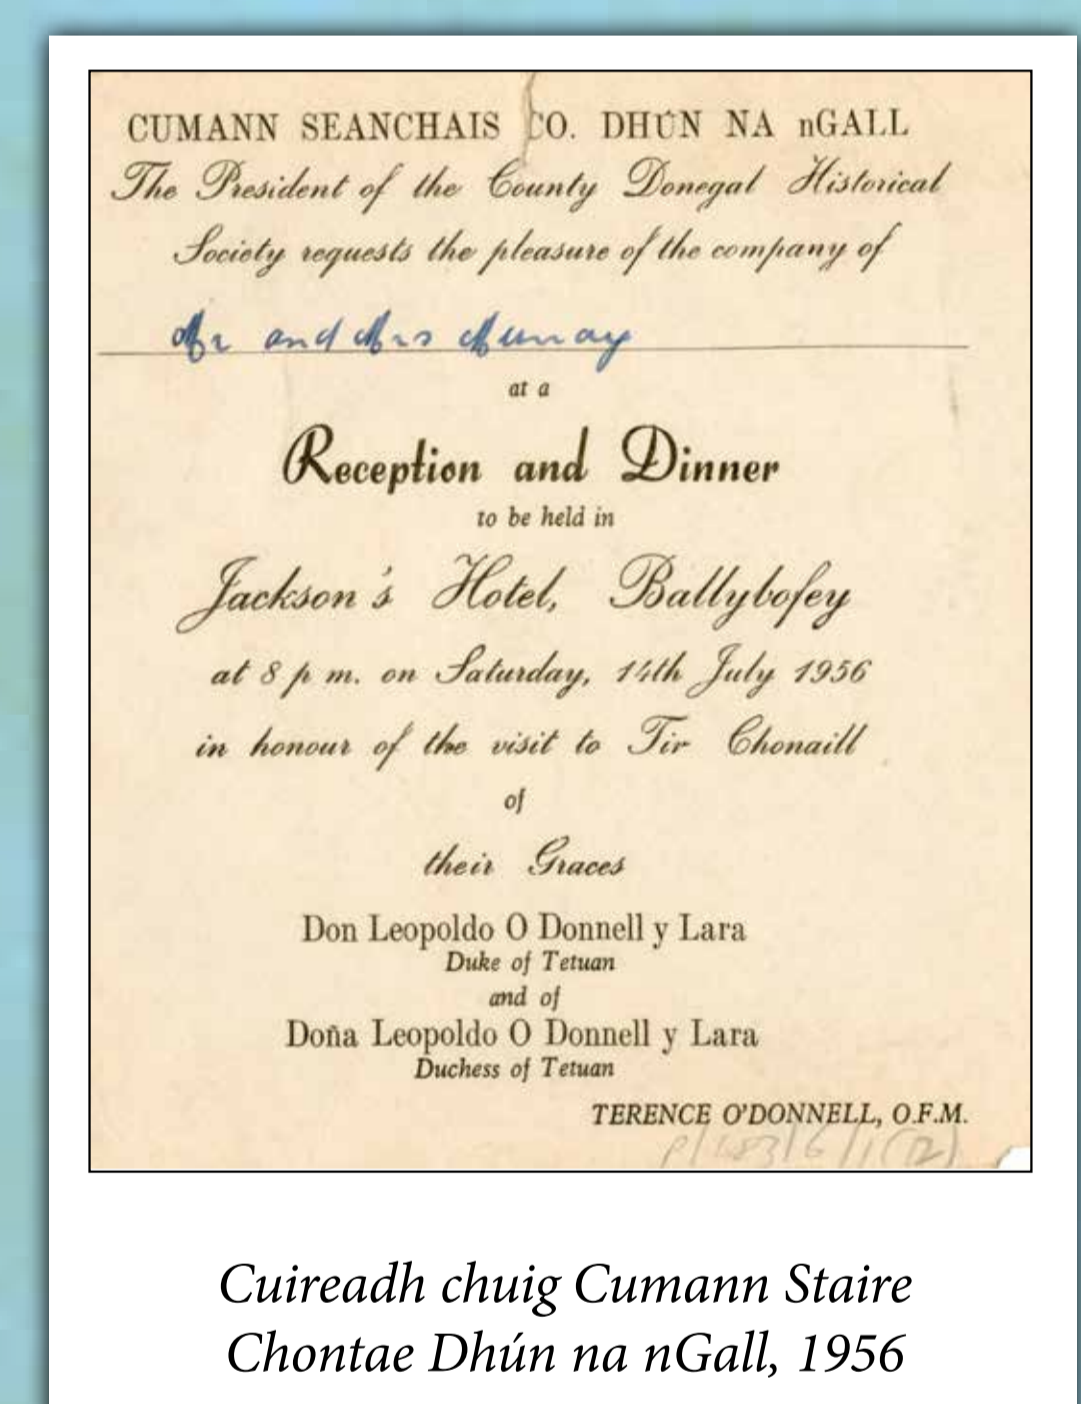 CUMANN SEANCHAIS CO. DHÚN NA nGALL
The President of the County Donegal Historical
Society requests the pleasure of the company of
Mr and Mrs Murray
at a
Reception and Dinner
to be held in
Jackson's Hotel, Ballybofey
at 8 p m. on Saturday, 14th July 1956
in honour of the visit to Tir Chonaill
of
their Graces
Don Leopoldo O Donnell y Lara
Duke of Tetuan
and of
Doña Leopoldo O Donnell y Lara
Duchess of Tetuan
TERENCE O'DONNELL, O.F.M.
Cuireadh chuig Cumann Staire
Chontae Dhún na nGall, 1956